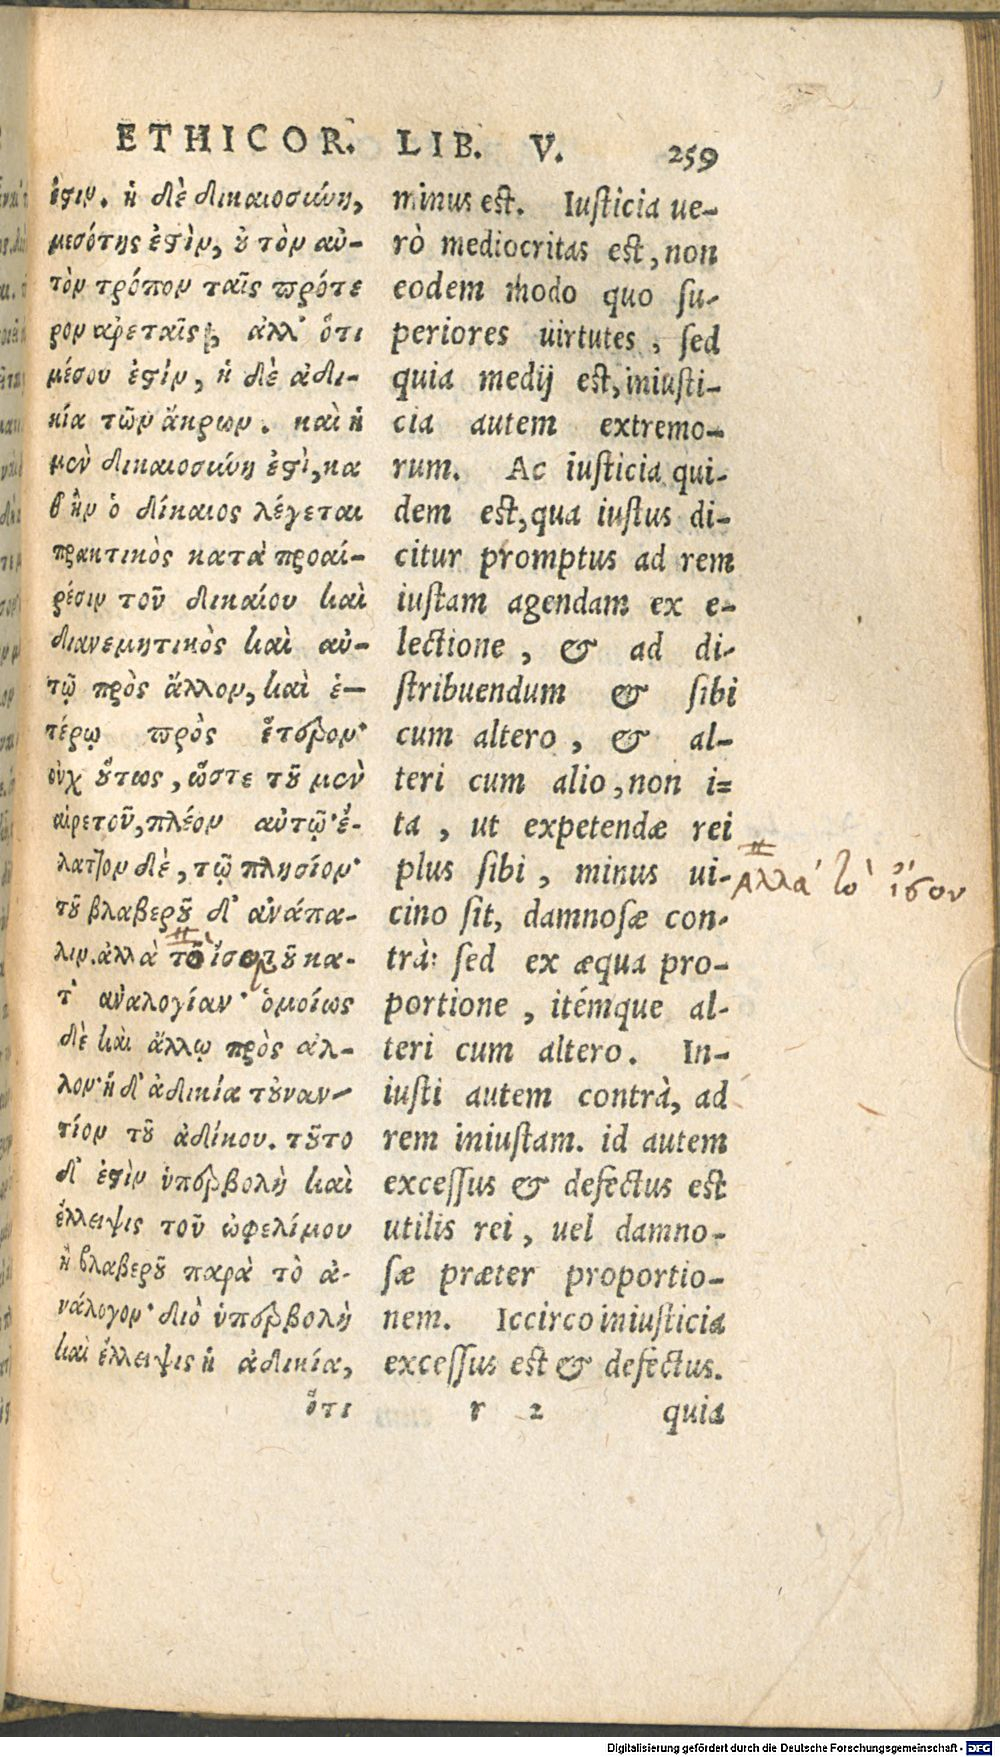 ETHICOR. LIB. V. 259
ἐστιν. ἡ δὲ δικαιοσύνη,
μεσότης ἐστὶν, οὐ τὸν αὐ-
τὸν τρόπον ταῖς πρότε
ρον ἀρεταῖς, ἀλλ' ὅτι
μέσου ἐστίν, ἡ δὲ ἀδι-
κία τῶν ἄκρων. καὶ ἡ
μὲν δικαιοσύνη ἐστὶ, κα
θ' ἣν ὁ δίκαιος λέγεται
πρακτικὸς κατὰ προαί-
ρέσιν τοῦ δικαίου καὶ
διανεμητικὸς καὶ αὑ-
τῷ πρὸς ἄλλον, καὶ ἑ-
τέρῳ πρὸς ἕτερον·
οὐχ οὕτως, ὥστε τοῦ μὲν
αἱρετοῦ, πλέον αὑτῷ· ἔ-
λαττον δὲ, τῷ πλησίον·
τοῦ βλαβεροῦ δ' ἀνάπα-
λιν. ἀλλὰ τὸ ἴσον τοῦ κα-
τ' ἀναλογίαν· ὁμοίως
δὲ καὶ ἄλλῳ πρὸς ἀλ-
λον· ἡ δ' ἀδικία τοὐναν-
τίον τοῦ ἀδίκου. τοῦτο
δ' ἐστὶν ὑπερβολὴ καὶ
ἔλλειψις τοῦ ὠφελίμου
ἢ βλαβεροῦ παρὰ τὸ ἀ-
νάλογον· διὸ ὑπερβολὴ
καὶ ἔλλειψις ἡ ἀδικία,
ὅτι
minus est. Iusticia ue-
rò mediocritas est, non
eodem modo quo su-
periores uirtutes, sed
quia medij est, iniusti-
cia autem extremo-
rum. Ac iusticia qui-
dem est, qua iustus di-
citur promptus ad rem
iustam agendam ex e-
lectione, & ad di-
stribuendum & sibi
cum altero, & al-
teri cum alio, non i=
ta, ut expetendæ rei
plus sibi, minus ui-
cino sit, damnosæ con-
trà: sed ex æqua pro-
portione, itémque al-
teri cum altero. In-
iusti autem contrà, ad
rem iniustam. id autem
excessus & defectus est
utilis rei, uel damno-
sæ præter proportio-
nem. Iccirco iniusticia
excessus est & defectus.
r 2 quia
ἀλλὰ τὸ ἴσον
Digitalisierung gefördert durch die Deutsche Forschungsgemeinschaft - DFG